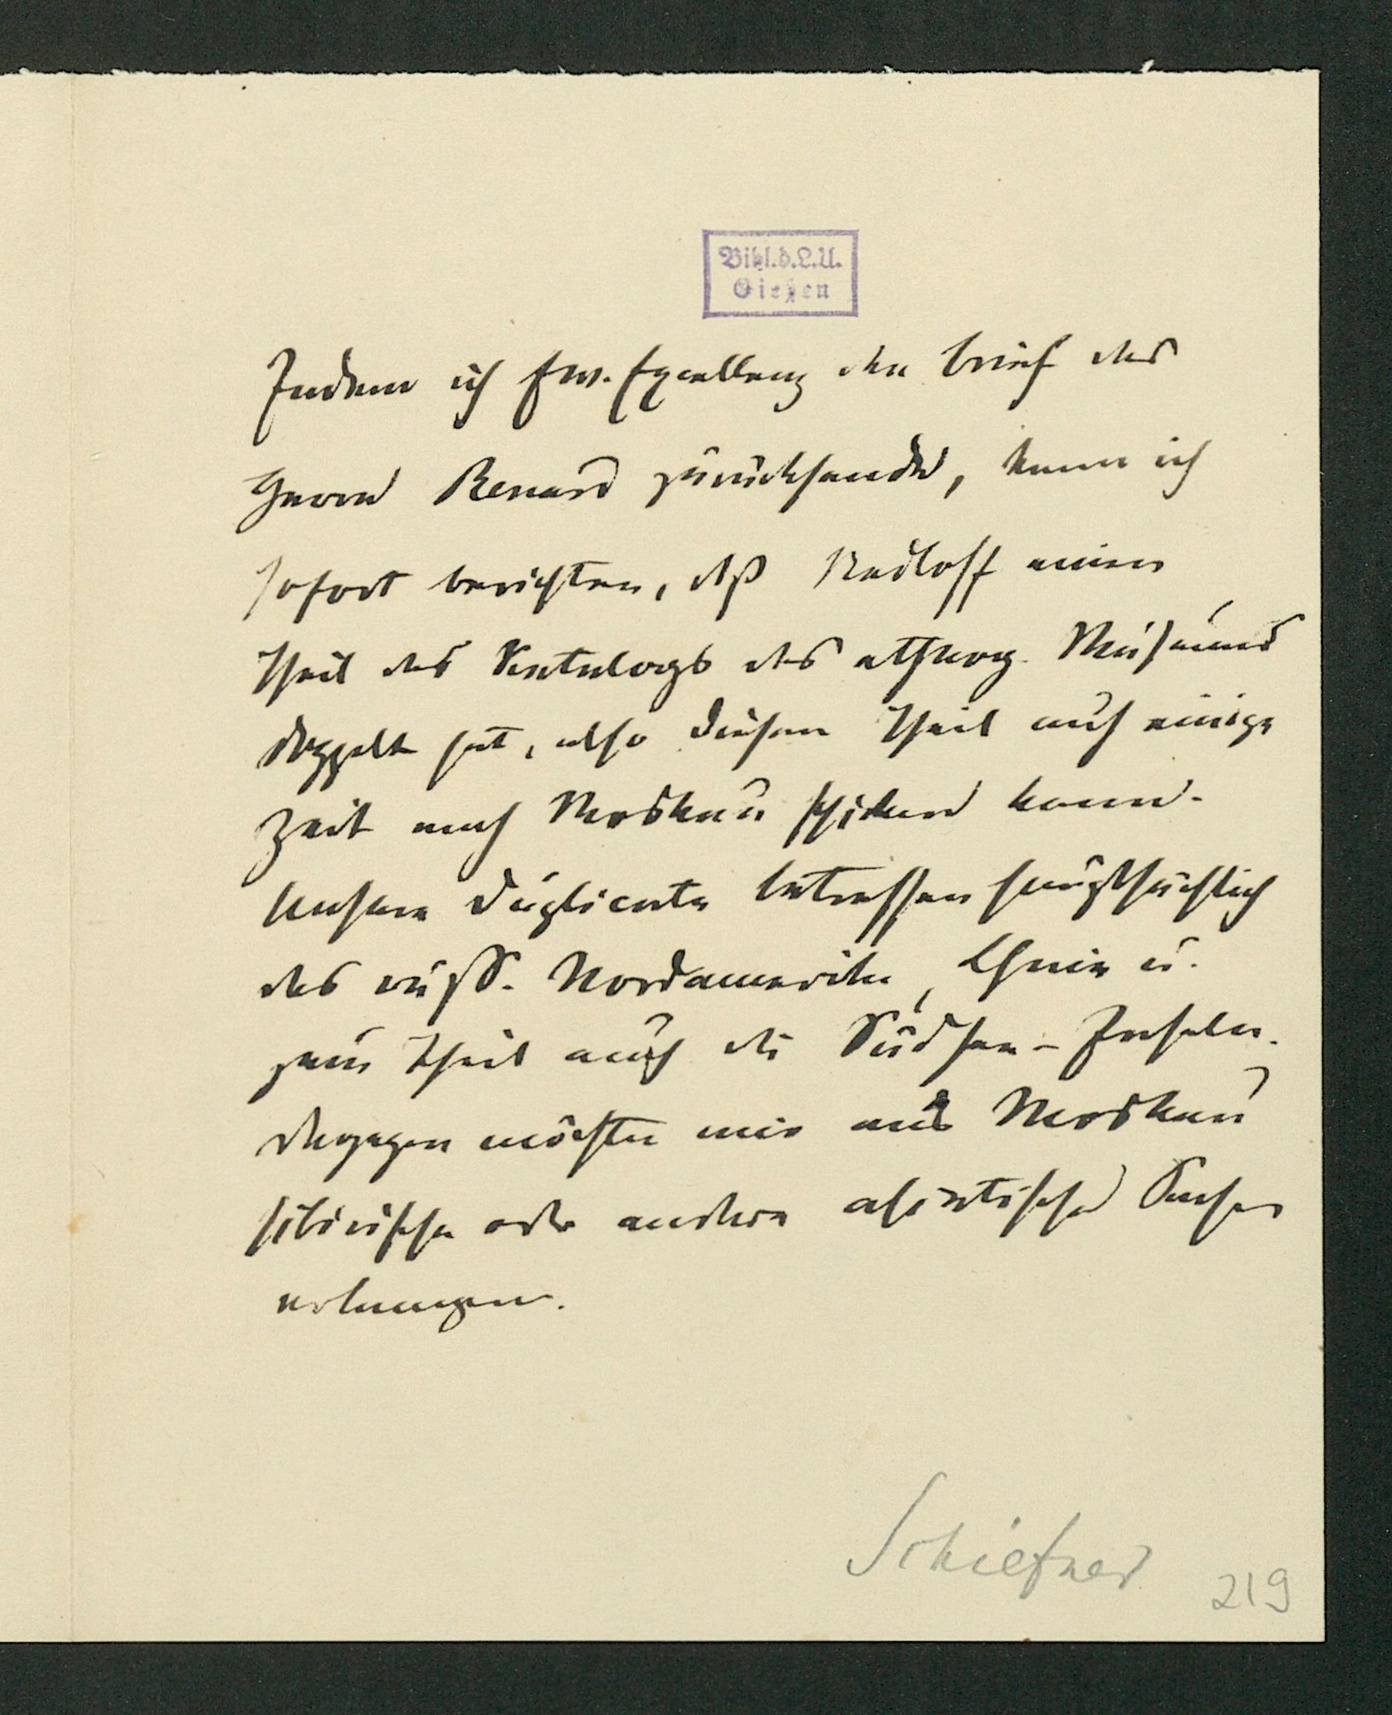 Bibl.d.L.U.
Gießen
Indem ich Ew. Excellenz den Brief des
Herrn Renard zurücksende, kann ich
sofort berichten, daß Radloff einen
Theil des Katalogs des ethnog. Museums
doppelt hat, also diesen Theil auf einige
Zeit nach Moskau schicken kann.
Unsere Duplicate betreffen hauptsächlich
das russ. Nordamerika, China u.
zum Theil auch die Südsee-Inseln.
Dagegen möchten wir aus Moskau
sibirische oder andere asiatische Sachen
erlangen.
Schiefner
219